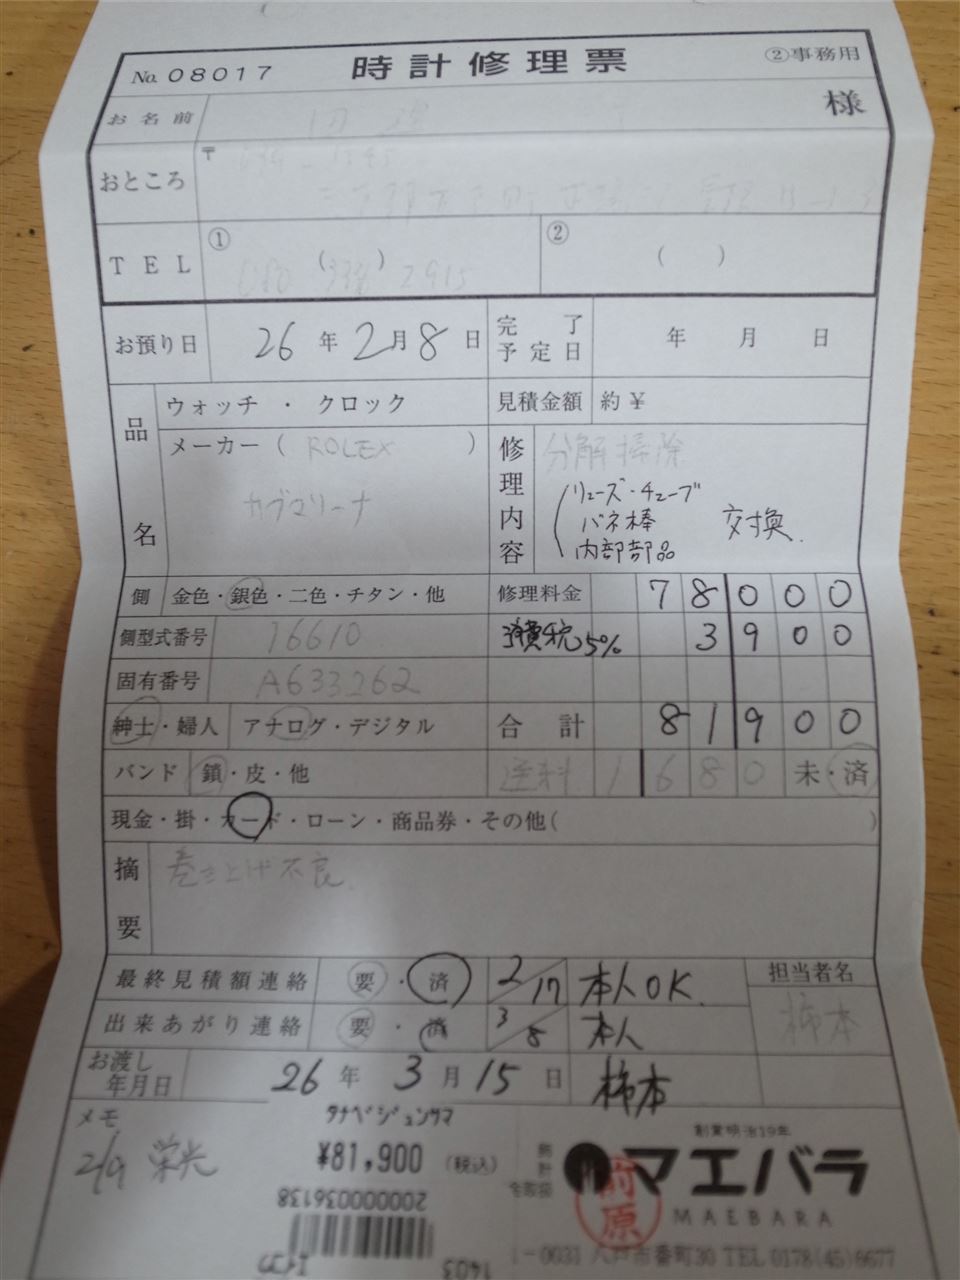 No. 08017 時計修理票 ②事務用
お名前 様
おところ 〒
TEL ① ( ) 2915 ② ( )
お預り日 26年2月8日 完了予定日 年 月 日
品名 ウォッチ・クロック 見積金額 約¥
メーカー ( ROLEX ) 修理内容 分解掃除
リューズ・チューブ
バネ棒 交換.
内部部品
側 金色・銀色・二色・チタン・他 修理料金 78000
側型式番号 16610 消費税5% 3900
固有番号 A633262
紳士・婦人 アナログ・デジタル 合計 81900
バンド 鎖・皮・他 送料 1680 未・済
現金・掛・カード・ローン・商品券・その他( )
摘要 巻き上げ不良
最終見積額連絡 要・済 2/17 本人OK. 担当者名
出来あがり連絡 要・済 3/8 本人 柿本
お渡し年月日 26年3月15日 柿本
メモ タナベジュンサマ 創業明治19年
2/9 栄光 ¥81,900 (税込) マエバラ
前原
2000000036138 MAEBARA
1403 -0031 八戸市番町30 TEL 0178(45)6677